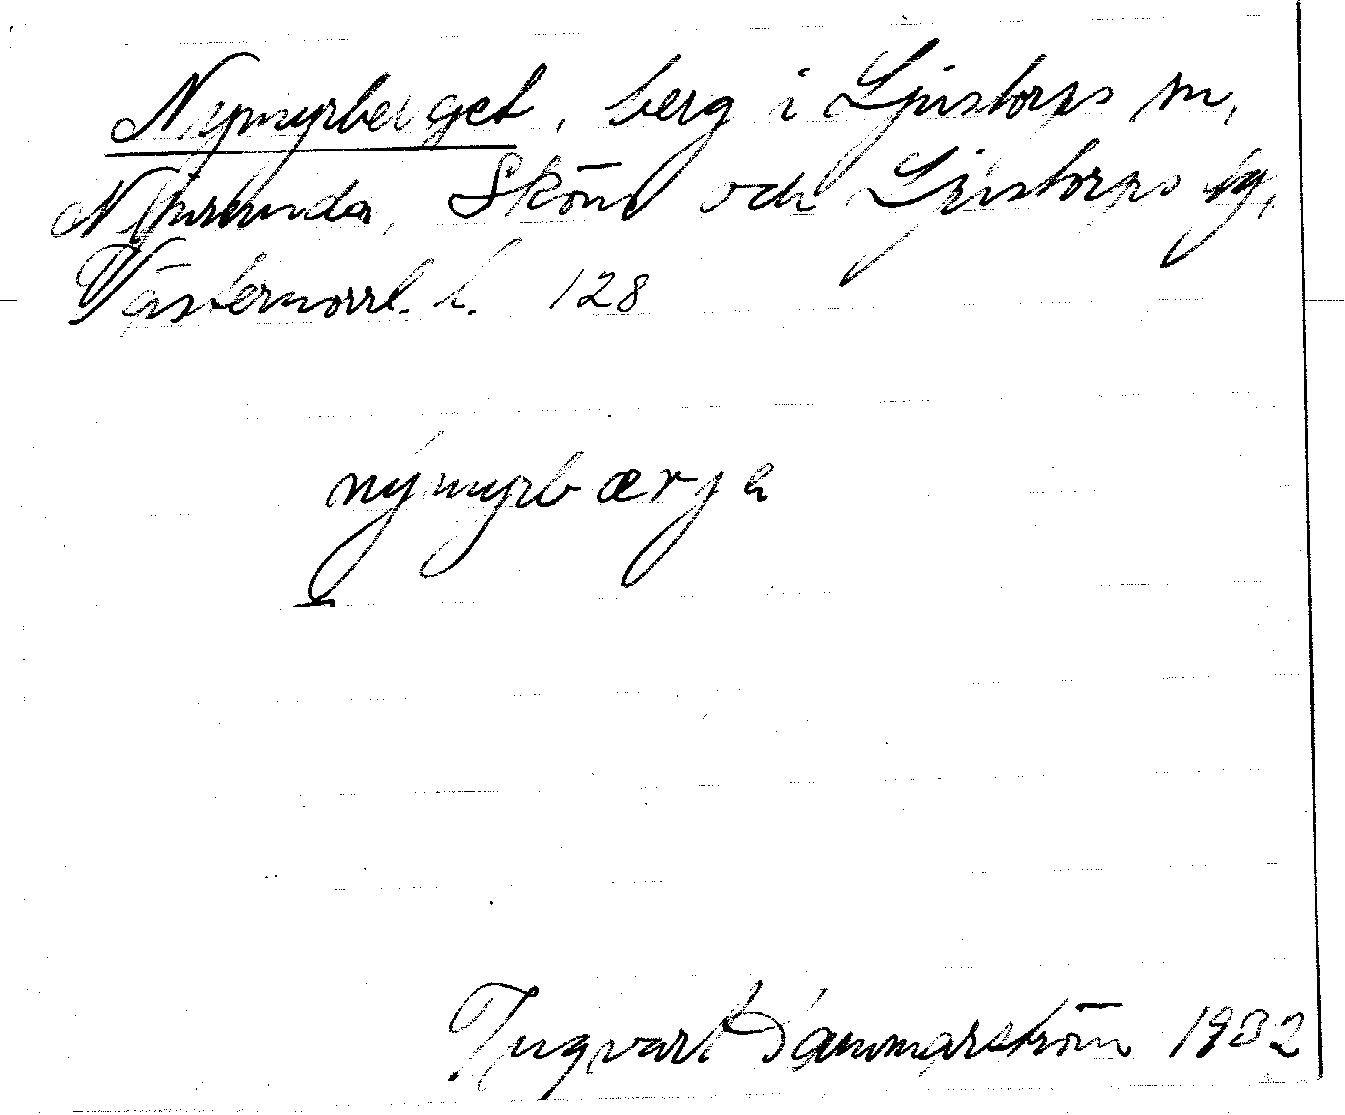 Nymyrberget, berg i Ljustorps sn,
Njurunda, Sköns och Ljustorps tg,
Västernorrl. l. 128
nýmyrbærjɐ
Ingvart Dammarström 1932